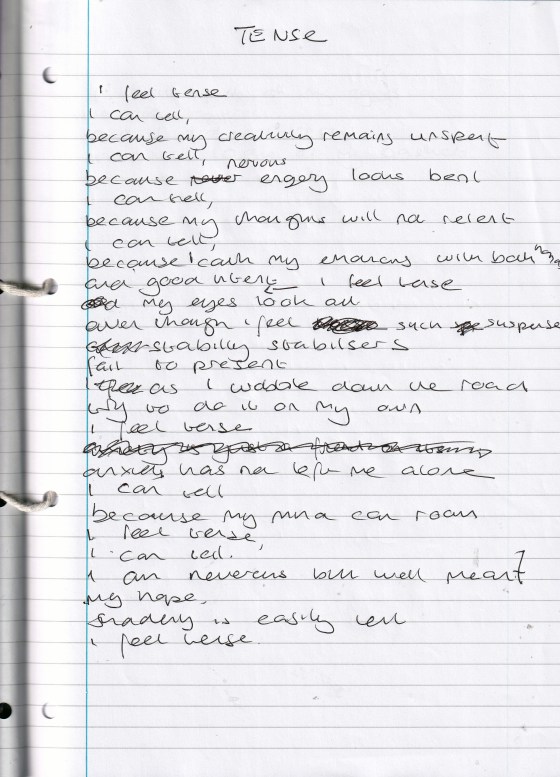 TENSE
i feel tense
i can tell,
because my creativity remains unspent
i can tell, nervous
because engery looks bent
i can tell,
because my thoughts will not relent
i can tell,
because I cash my emotions with both
and good intent i feel tense
my eyes look out
over though i feel such suspense
stability stabilsers
fail to present
as I wobble down the road
try to do it on my own
i feel tense
anxiety has not left me alone
i can tell
because my mind can roam
i feel tense,
i can tell.
i am neverous but well meant
my hope,
is easily lent
i feel tense.